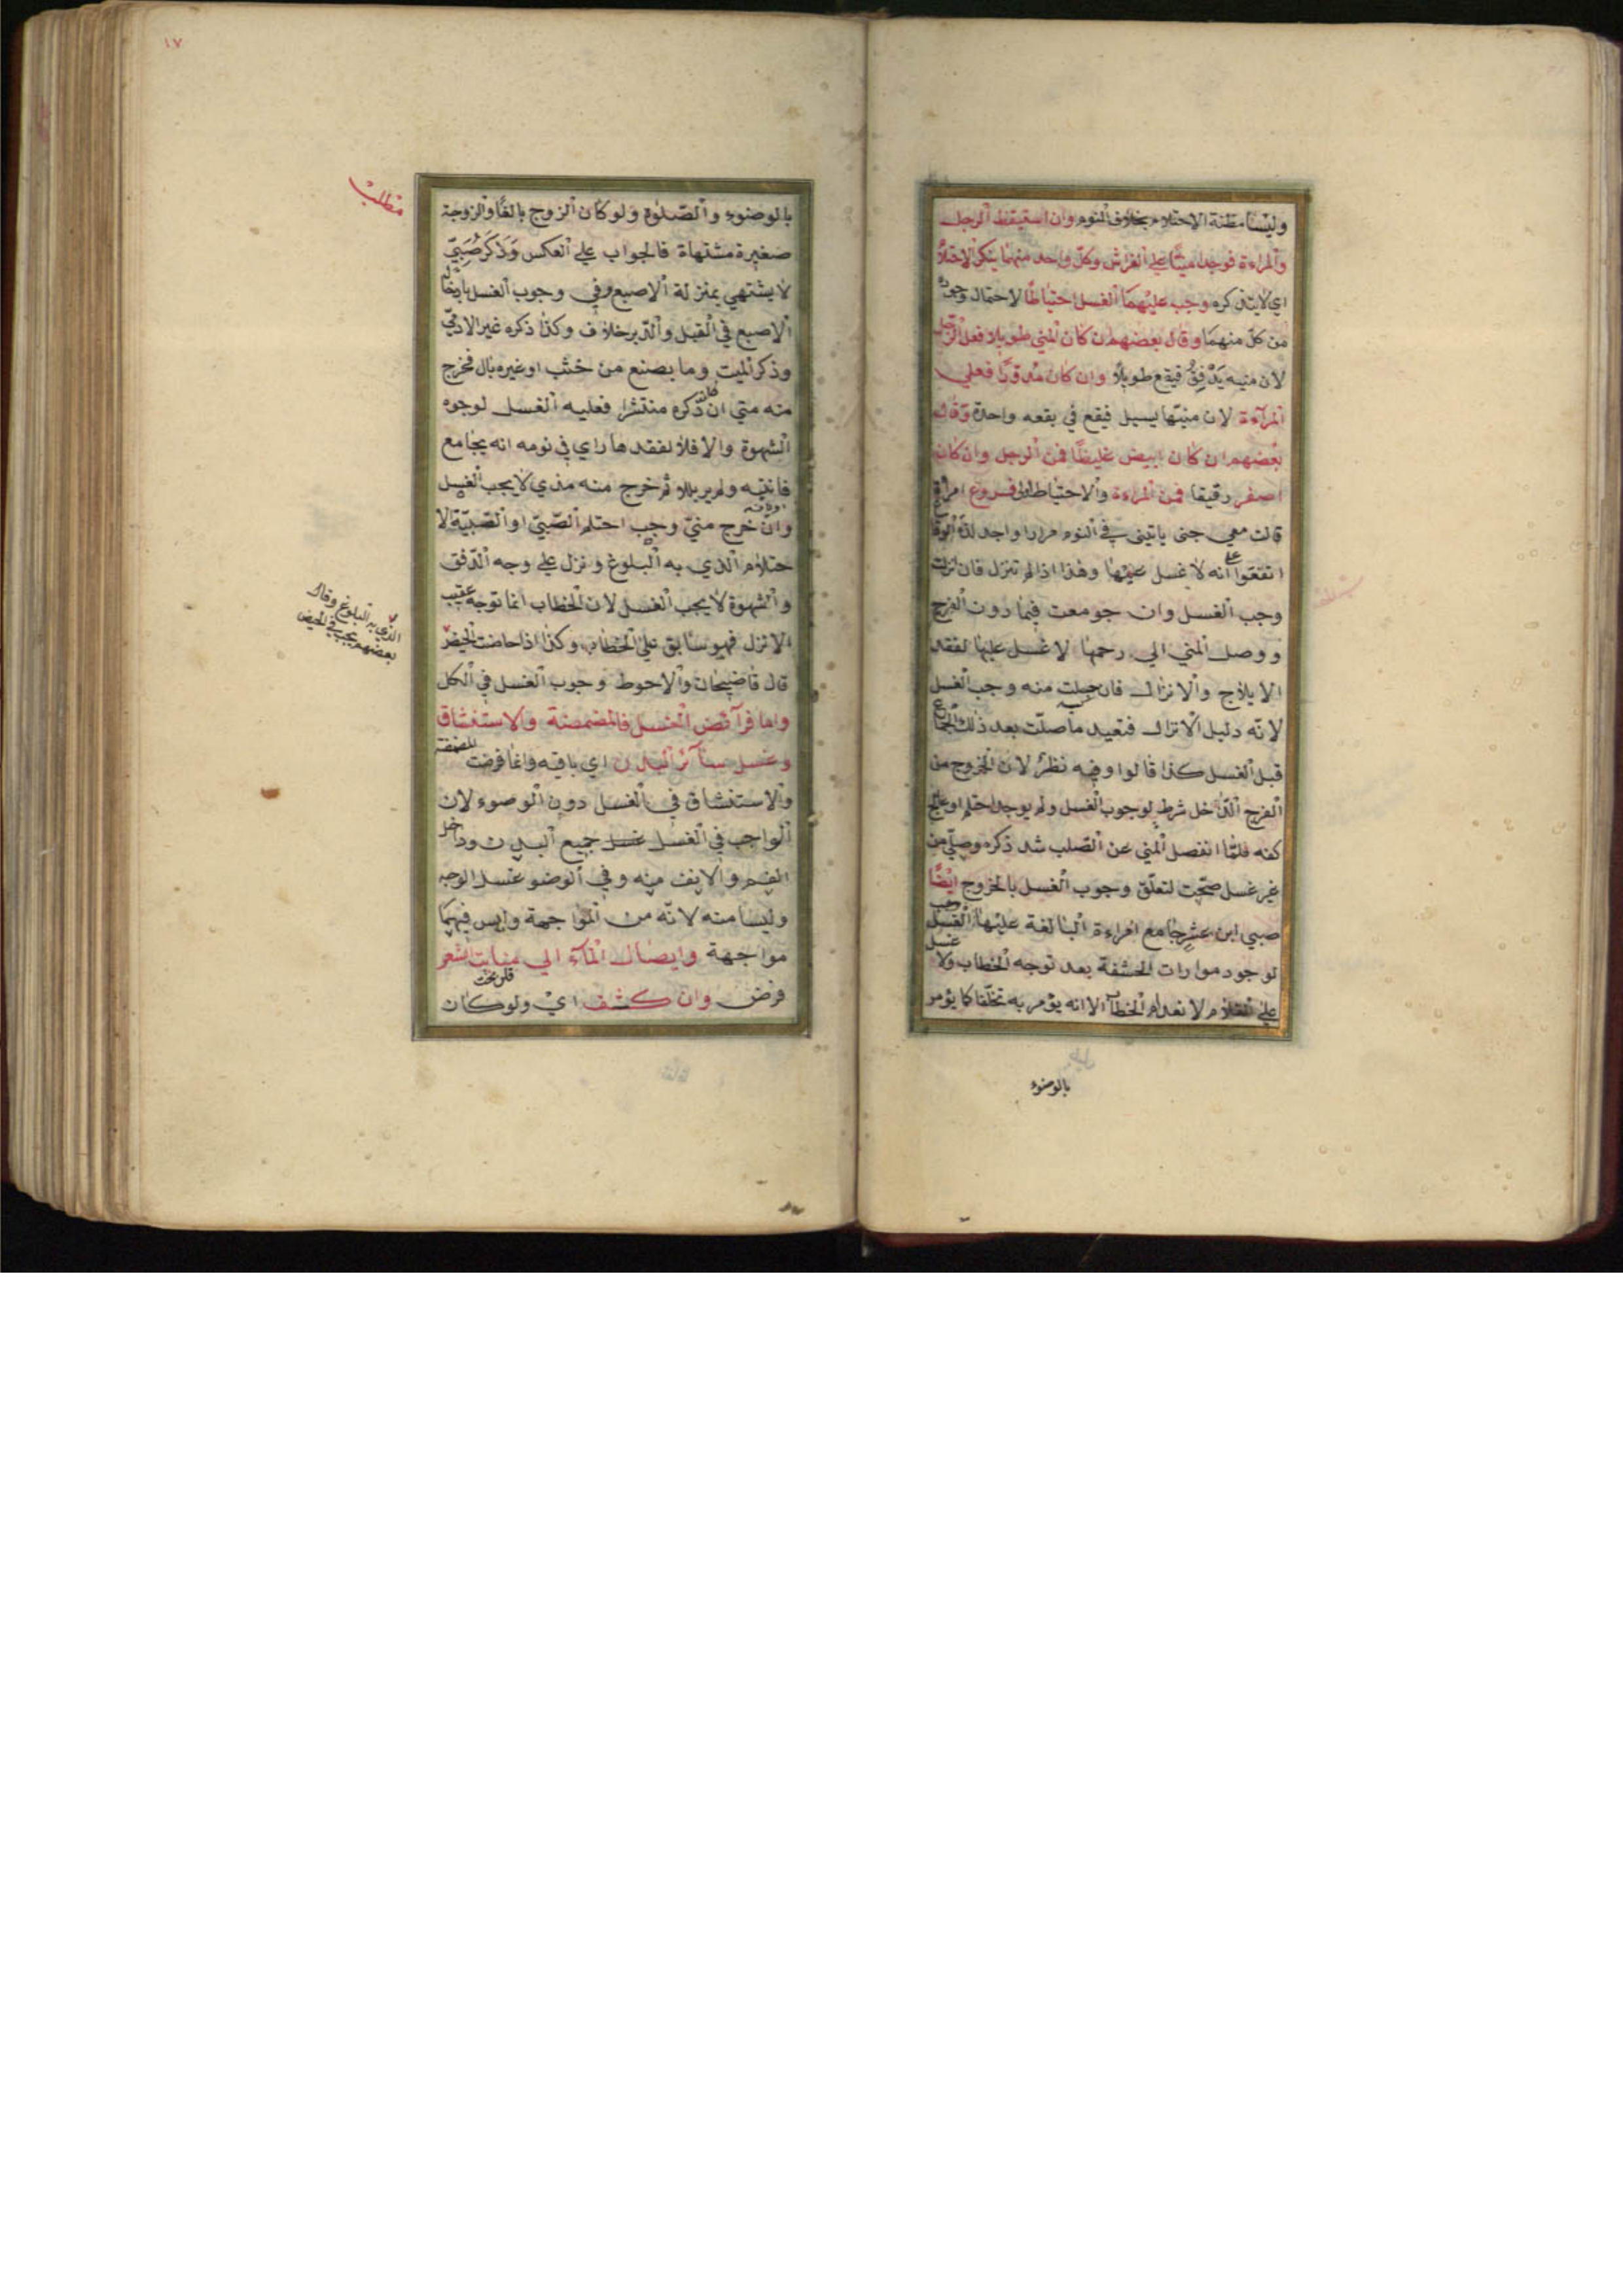 وليسا مظنة الاحتلام بخلاف النوم وان استيقظ الرجل
والمراءة فوجدا منيًّا علي الفراش وكلّ واحد منهما ينكر الاحتلام
اي لايتذكره وجب عليهما الغسل احتياطًا لاحتمال وجوده
من كلّ منهما وقال بعضهم ان كان المني طويلا فعلي الرّجل
لان منيه يَدْفِقُ فيقع طويلاً وان كان مدوّرًا فعلي
المرآءة لان منيّها يسيل فيقع في بقعه واحدة وقال
بعضهم ان كان ابيض غليظًا فمن الرجل وان كان
اصفر رقيقا فمن المراءة والاحتياط اولي فروع امراة
قالت معي جنى ياتينى في النوم مرارا واجد لذّة الوقاع
اتفقوا علي انه لا غسل عليها وهذا اذا لم تنزل فان نزلت
وجب الغسل وان جومعت فيما دون الفرج
ووصل المني الي رحمها لا غسل عليها لفقد
الايلاج والانزال فان حبلت منه وجب الغسل
لانّه دليل الانزال فتعيد ما صلّت بعد ذلك الجماع
قبل الغسل كذا قالوا وفيه نظر لان الخروج من
الفرج الدّاخل شرط لوجوب الغسل ولم يوجد احتلم او عالج
كفه فلمّا انفصل المني عن الصّلب شد ذكره وصلّي من
غير غسل صحّت لتعلّق وجوب الغسل بالخروج ايضًا
صبي ابن عشر جامع امراءة البالغة عليها وجب الغسل
لوجود موارات الحشفة بعد توجه الخطاب ولا غسل
علي الغلام لانعدام الخطاب الا انه يؤمر به تخلّقا كما يؤمر
بالوضوء
١٧
مطلب
بالوضوء والصّلوة ولو كان الزوج بالغًا والزوجة
صغيرة مشتهاة فالجواب علي العكس وَذَكَر صَبِيّ
لا يشتهي بمنزلة الاصبع وفي وجوب الغسل بادخال
الاصبع في القبل والدّبر خلاف وكذا ذكر غير الادميّ
وذكر الميت وما يصنع من خشب او غيره بال فخرج
منه متي ان كان ذكره منتشرا فعليه الغسل لوجوه
الشهوة والا فلا لفقدها راي في نومه انه يجامع
فانتبه ولم ير بللا ثم خرج منه مذي لا يجب الغسل
وان خرج منيّ وجب احتلم الصّبيّ او الصّبيّة الا
حتلام الذي به البلوغ ونزل علي وجه الدّفق
والشهوة لا يجب الغسل لان الخطاب انما توجه عقيب
الانزل فهو سابق علي الخطاب وكذا اذا حاضت الحيض
الذي به البلوغ وقال
بعضهم يجب في الحيض
قال قاضيخان والاحوط وجوب الغسل في الكل
واما فرآئض الغسل فالمضمضة والاستنشاق
وغسل سآئر البدن اي باقيه وانما فرضت المضمضة
والاستنشاق في الغسل دون الوضوء لان
الواجب في الغسل غسل جميع البدن وداخل
الفم والانف منه وفي الوضو غسل الوجه
وليسا منه لانّه من المواجهة وليس فيهما
مواجهة وايصال المآء الي منابت الشعر
فرض وان كثف اي ولو كان